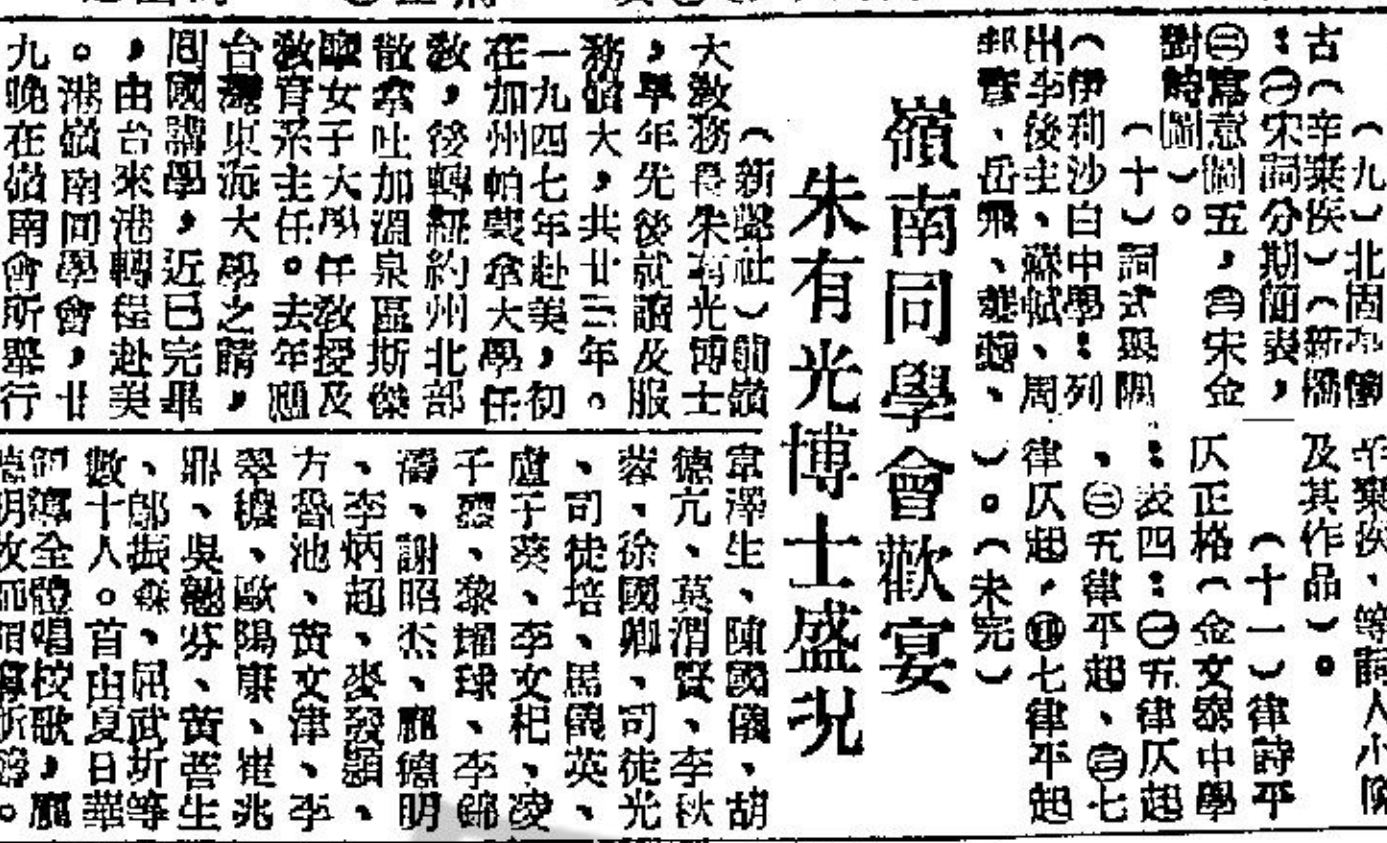 （九）北固亭懷
古（辛棄疾）（新橋
：㊀宋詞分期簡表，
㊁寫意圖五，㊂宋金
對峙圖）。
（十）詞式與限
（伊利沙白中學：列
出李後主、蘇軾、周
邦彥、岳飛、姜夔、
辛棄疾、等詞人小像
及其作品）。
（十一）律詩平
仄正格（金文泰中學
：表四：㊀五律仄起
、㊁五律平起、㊂七
律仄起，㊃七律平起
）。（未完）
嶺南同學會歡宴
朱有光博士盛況
（新聲社）前嶺
大教務長朱有光博士
，早年先後就讀及服
務嶺大，共廿三年。
一九四七年赴美，初
在加州帕薩拿大學任
教，後轉紐約州北部
散拿吐加溫泉區斯傑
女子大學任教授及
教育系主任。去年應
台灣東海大學之請，
回國講學，近已完畢
，由台來港轉程赴美
。港嶺南同學會，廿
九晚在嶺南會所舉行
韋澤生、陳國儀、胡
德亢、莫渭賢、李秋
蓉、徐國卿、司徒光
、司徒培、馬儀英、
盧子葵、李文杞、凌
千、黎耀球、李錦
濤、謝昭杰、龐德明
、李炳超、麥發顯、
方晉池、黃文津、李
翠、歐陽康、崔兆
鼎、吳芬、黃菩生
、鄔振森、武圻等
數十人。首由夏日華
領導全體唱校歌，龐
德明牧師領導祈禱。